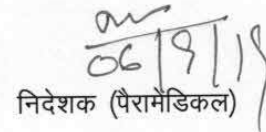 06/9/19
निदेशक (पैरामेडिकल)